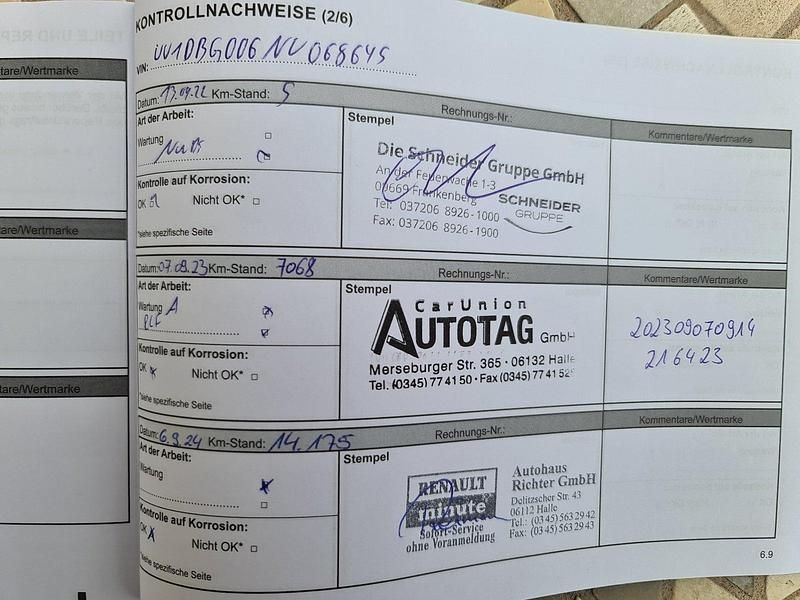 TEILE UND REP
tare/Wertmarke
tare/Wertmarke
tare/Wertmarke
KONTROLLNACHWEISE (2/6)
VIN: UU1DBG006NU068645
Datum: 13.09.22 Km-Stand: 5
Rechnungs-Nr.:
Kommentare/Wertmarke
Art der Arbeit:
Wartung
Kontrolle auf Korrosion:
OK Nicht OK*
*siehe spezifische Seite
Stempel
Die Schneider Gruppe GmbH
An der Feuerwache 1-3
09669 Frankenberg
Tel: 037206 8926-1000
Fax: 037206 8926-1900
SCHNEIDER
GRUPPE
Datum: 07.09.23 Km-Stand: 7068
Rechnungs-Nr.:
Kommentare/Wertmarke
Art der Arbeit:
Wartung A
Kontrolle auf Korrosion:
OK x Nicht OK*
*siehe spezifische Seite
Stempel
CarUnion
AUTOTAG GmbH
Merseburger Str. 365 · 06132 Halle
Tel. (0345) 77 41 50 · Fax (0345) 77 41 52
202309070914
216423
Datum: 6.9.24 Km-Stand: 14.175
Rechnungs-Nr.:
Kommentare/Wertmarke
Art der Arbeit:
Wartung x
Kontrolle auf Korrosion:
OK x Nicht OK*
*siehe spezifische Seite
Stempel
RENAULT
minute
Sofort-Service
ohne Voranmeldung
Autohaus
Richter GmbH
Delitzscher Str. 43
06112 Halle
Tel.: (03 45) 563 29 42
Fax: (03 45) 563 29 43
6.9